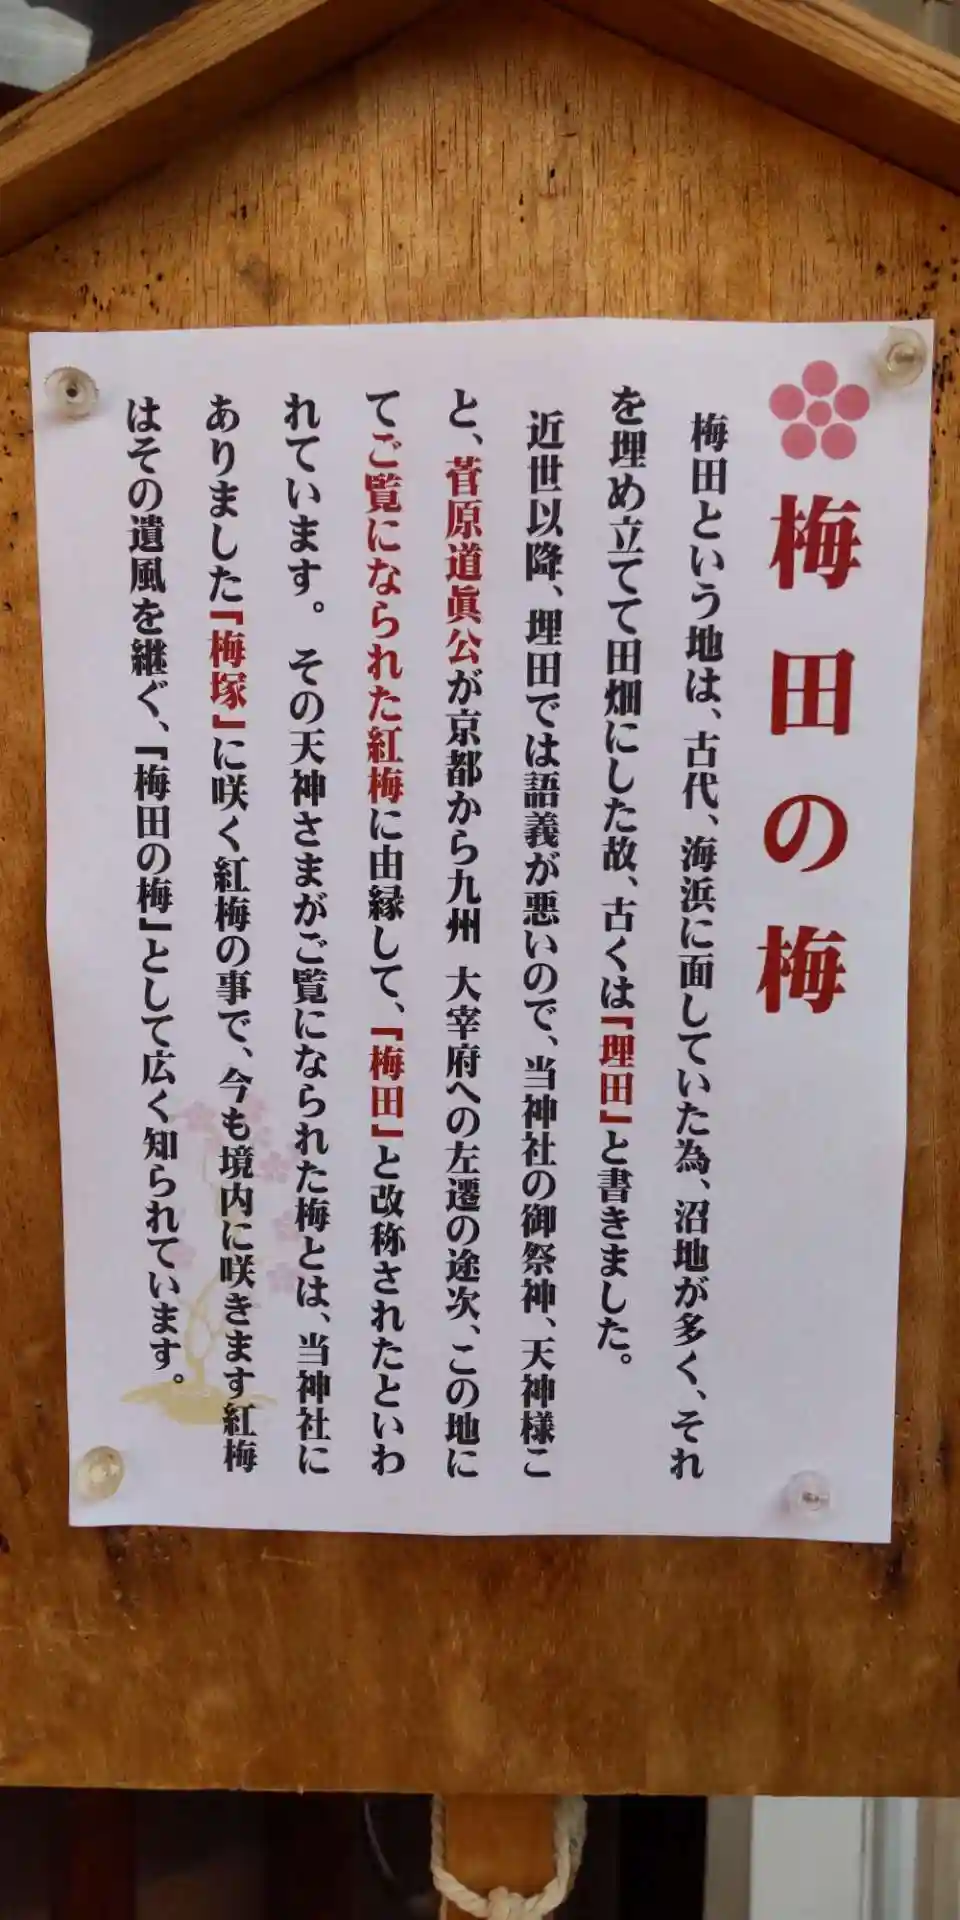 梅田の梅
梅田という地は、古代、海浜に面していた為、沼地が多く、それ
を埋め立てて田畑にした故、古くは『埋田』と書きました。
近世以降、埋田では語義が悪いので、当神社の御祭神、天神様こ
と、菅原道眞公が京都から九州 大宰府への左遷の途次、この地に
てご覧になられた紅梅に由縁して、『梅田』と改称されたといわ
れています。その天神さまがご覧になられた梅とは、当神社に
ありました『梅塚』に咲く紅梅の事で、今も境内に咲きます紅梅
はその遺風を継ぐ、『梅田の梅』として広く知られています。